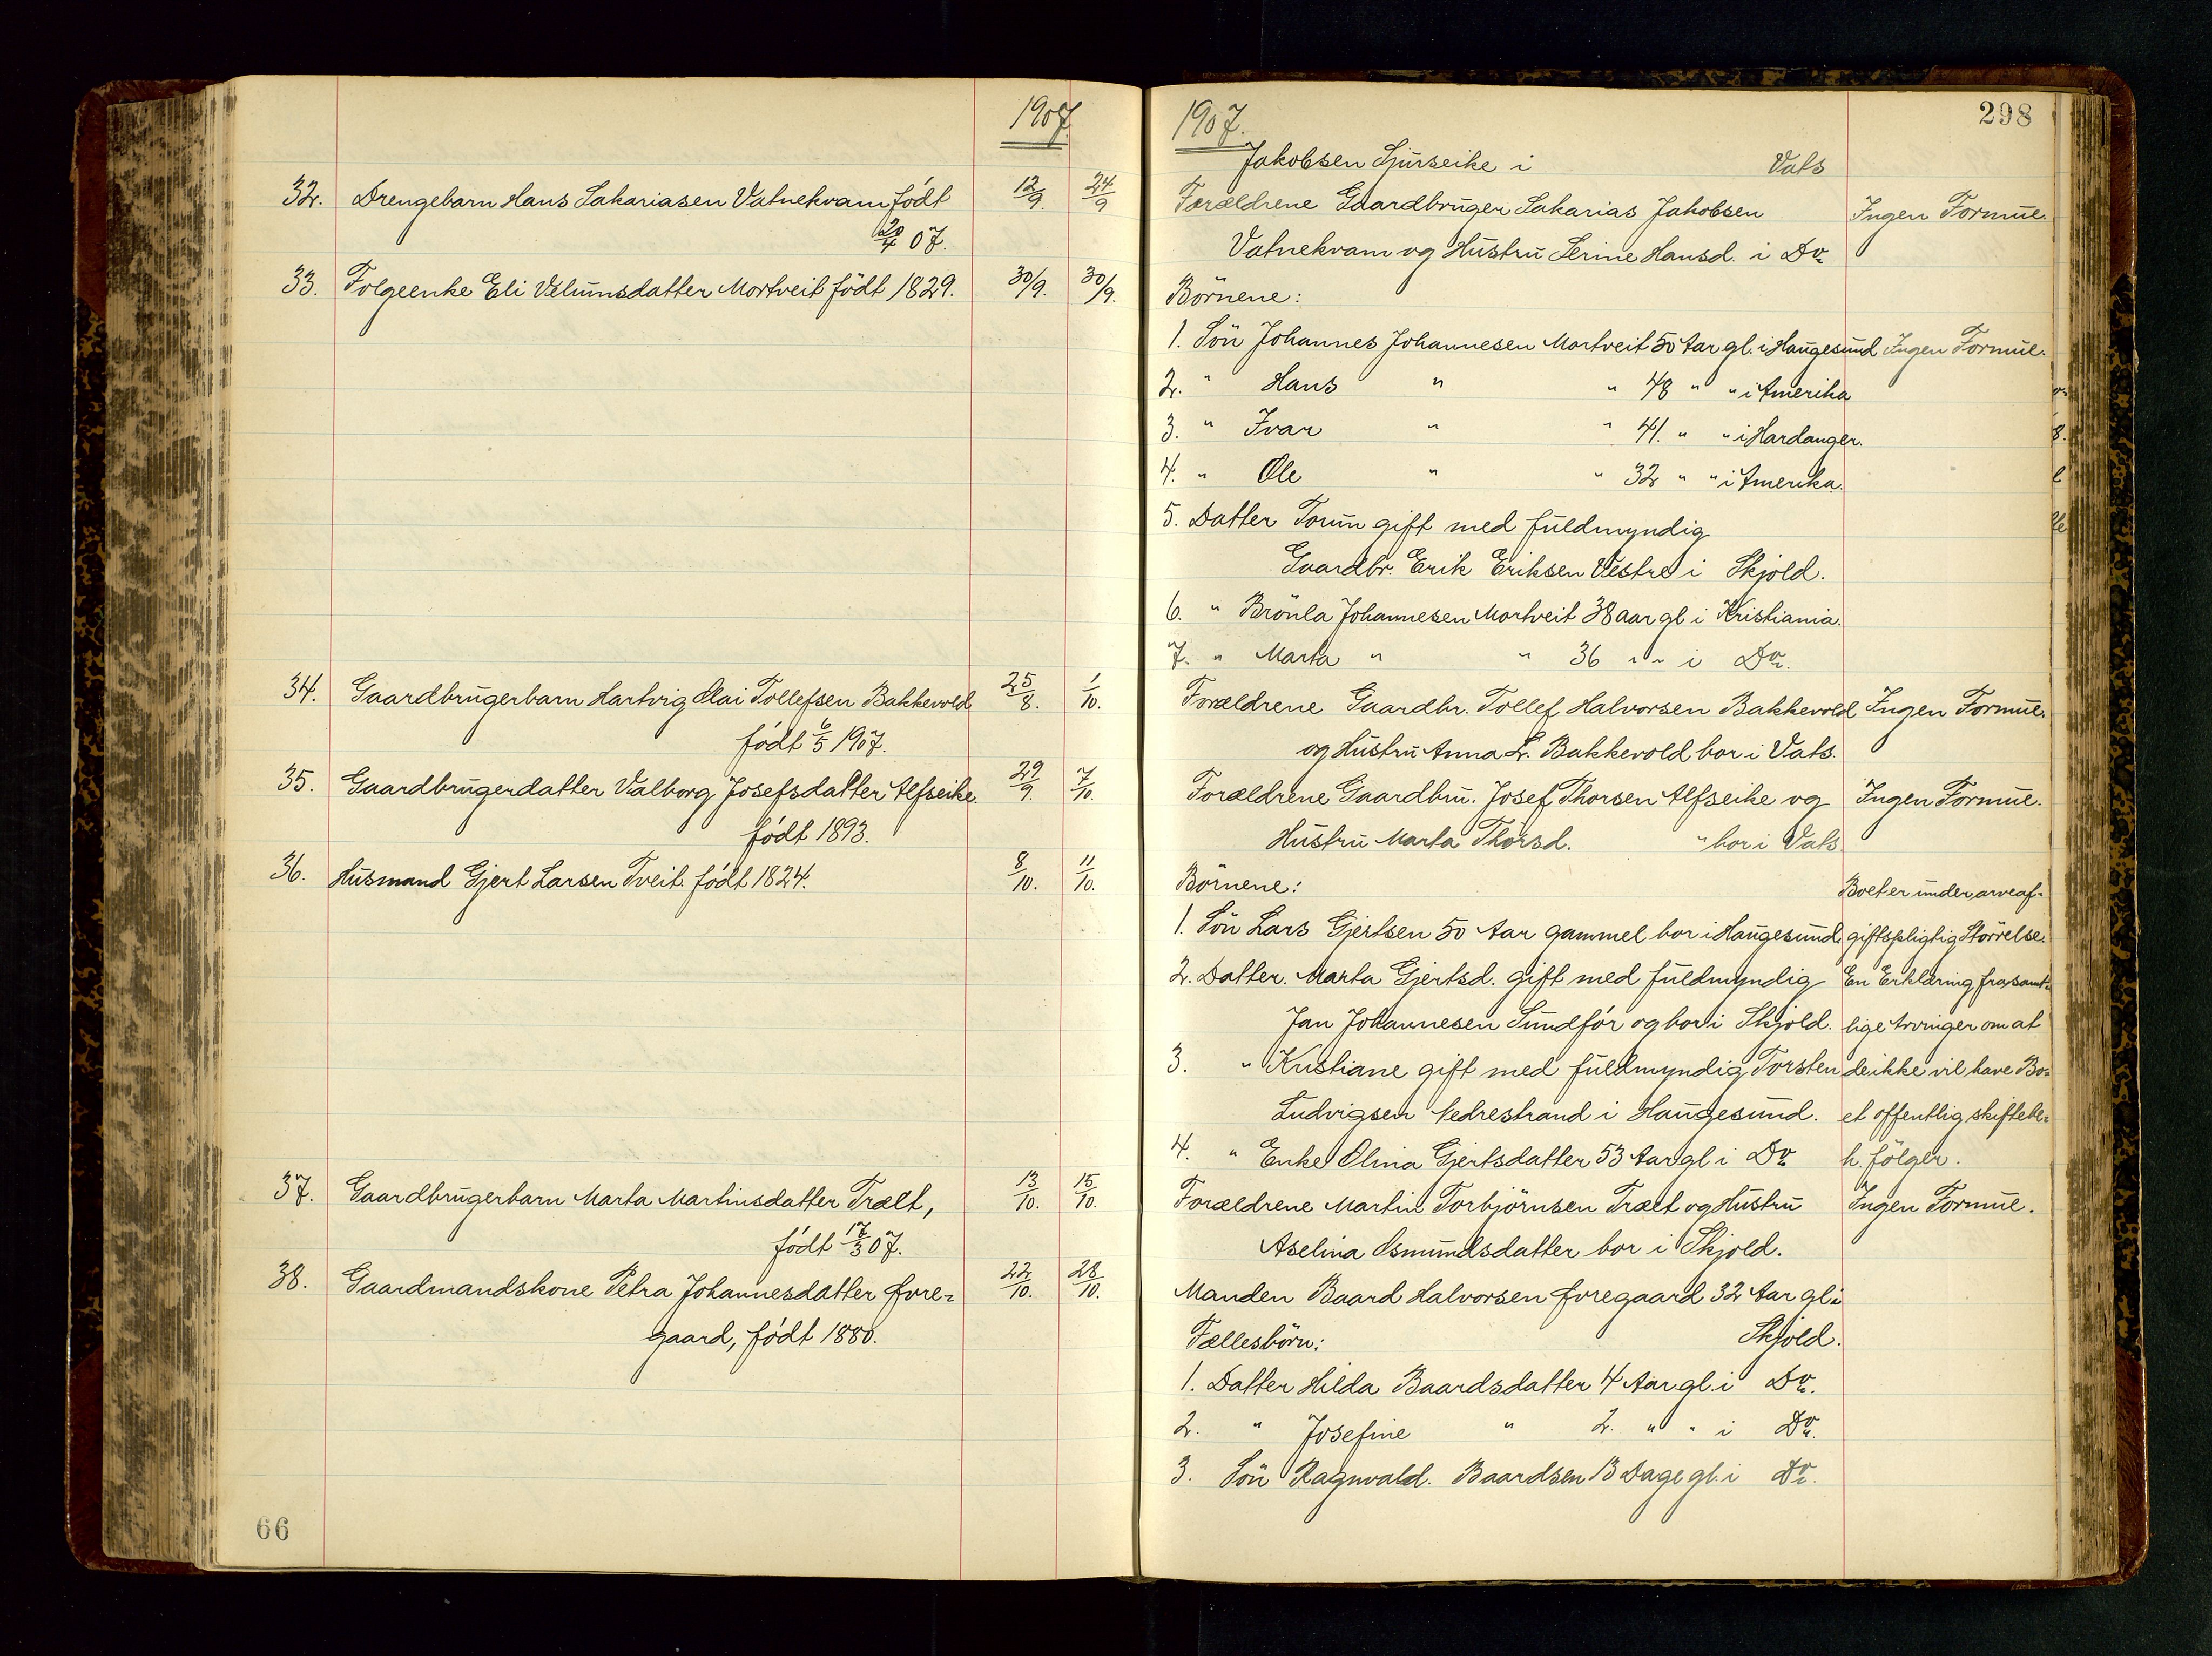 1907
32. Drengebarn Hans Sakariasen Vatnekvam født 12/9. 24/9
20/4 07.
33. Folgeenke Eli Velumsdatter Mortveit født 1829. 30/9. 30/9.
34. Gaardbrugerbarn Hartvig Olai Tollefsen Bakkevold 25/8. 1/10.
født 6/5 1907.
35. Gaardbrugerdatter Valborg Josefsdatter Alfseike. 29/9. 7/10.
født 1893.
36. Husmand Gjert Larsen Tveit. født 1824. 8/10. 11/10.
37. Gaardbrugerbarn Marta Martinsdatter Trælt, 13/10. 15/10.
født 17/3 07.
38. Gaardmandskone Petra Johannesdatter Øvre= 22/10. 28/10.
gaard, født 1880.
66
1907.
298
Jakobsen Sjurseike i Vats
Forældrene Gaardbruger Sakarias Jakobsen Ingen Formue.
Vatnekvam og Hustru Serine Hansd. i Do
Börnene:
1. Sön Johannes Johannesen Mortveit 50 Aar gl. i Haugesund Ingen Formue.
2. " Hans " " 48 " " i Amerika
3. " Ivar " " 41. " " i Hardanger.
4. " Ole " " 32 " " i Amerika.
5. Datter Torun gift med fuldmyndig
Gaardbr. Erik Eriksen Vestre i Skjold.
6. " Brönla Johannesen Mortveit 38 aar gl i Kristiania.
7. " Marta " " 36 " " i Do.
Forældrene Gaardbr. Tollef Halvorsen Bakkevold Ingen Formue.
og Hustru Anna L. Bakkevold bor i Vats.
Forældrene Gaardbru. Josef Thorsen Alfseike og Ingen Formue.
Hustru Marta Thorsd. " bor i Vats
Börnene: Boet er under arveaf=
1. Sön Lars Gjertsen 50 Aar gammel bor i Haugesund. giftspligtig Störrelse.
2. Datter. Marta Gjertsd. gift med fuldmyndig En Erklæring fra samt=
Jan Johannesen Sundfør og bor i Skjold. lige Arvinger om at
3. " Kristiane gift med fuldmyndig Torsten de ikke vil have Bo=
Ludvigsen Nedrestrand i Haugesund. et offentlig skiftebe=
4. " Enke Olina Gjertsdatter 53 Aar gl i Do h. følger.
Forældrene Martin Torbjörnsen Trælt og Hustru Ingen Formue.
Aselina Osmundsdatter bor i Skjold.
Manden Baard Halvorsen Øvregaard 32 Aar gl i
Fællesbörn: Skjold.
1. Datter Hilda Baardsdatter 4 Aar gl. i Do.
2. " Josefine " 2. " " i Do.
3. Sön Ragnvald. Baardsen 13 Dage gl. i Do.